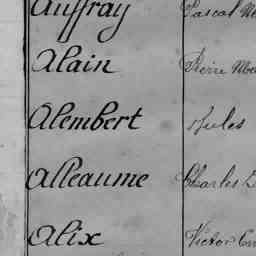 Auffray Pascal
Alain Pierre
Alembert Jules
Alleaume Charles
Alix Victor